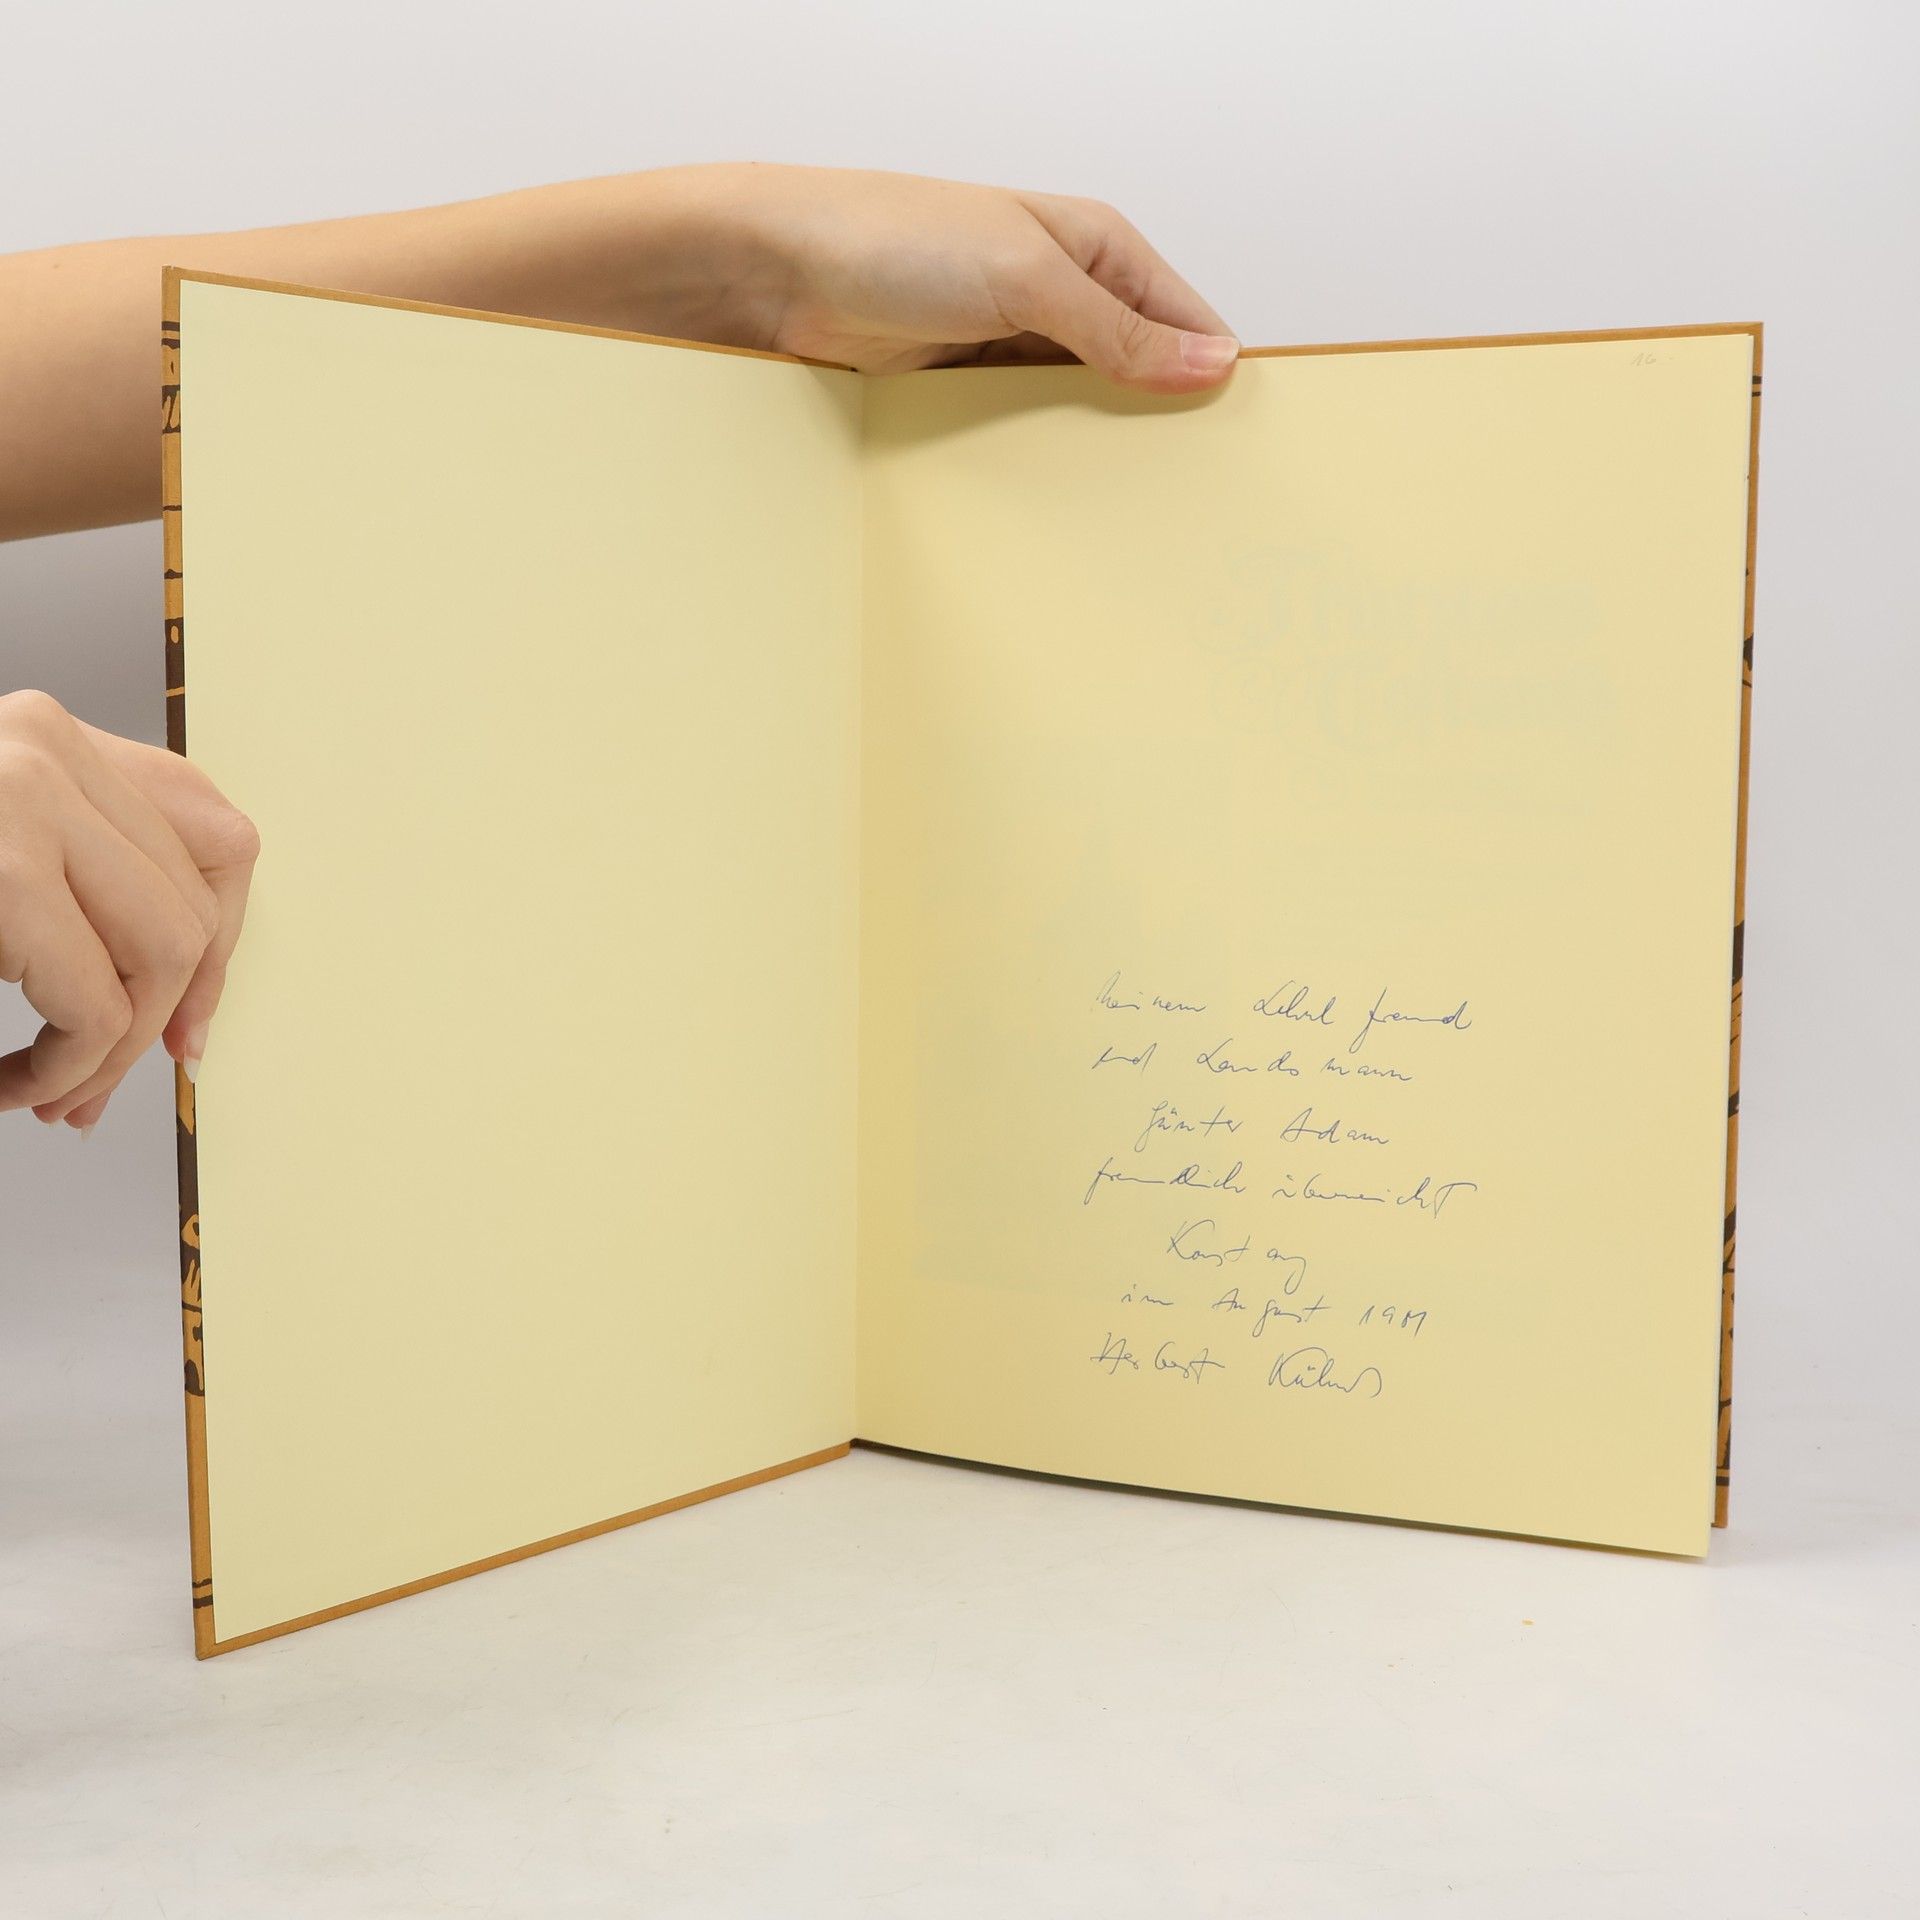 16.-
meinem
freund
und Landsmann
Günter Adam
freundlich überreicht
Konstanz
im August 1981
Herbert